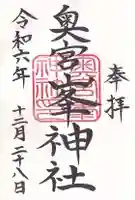 奉拝
奥宮峯神社
令和六年
十二月二十八日